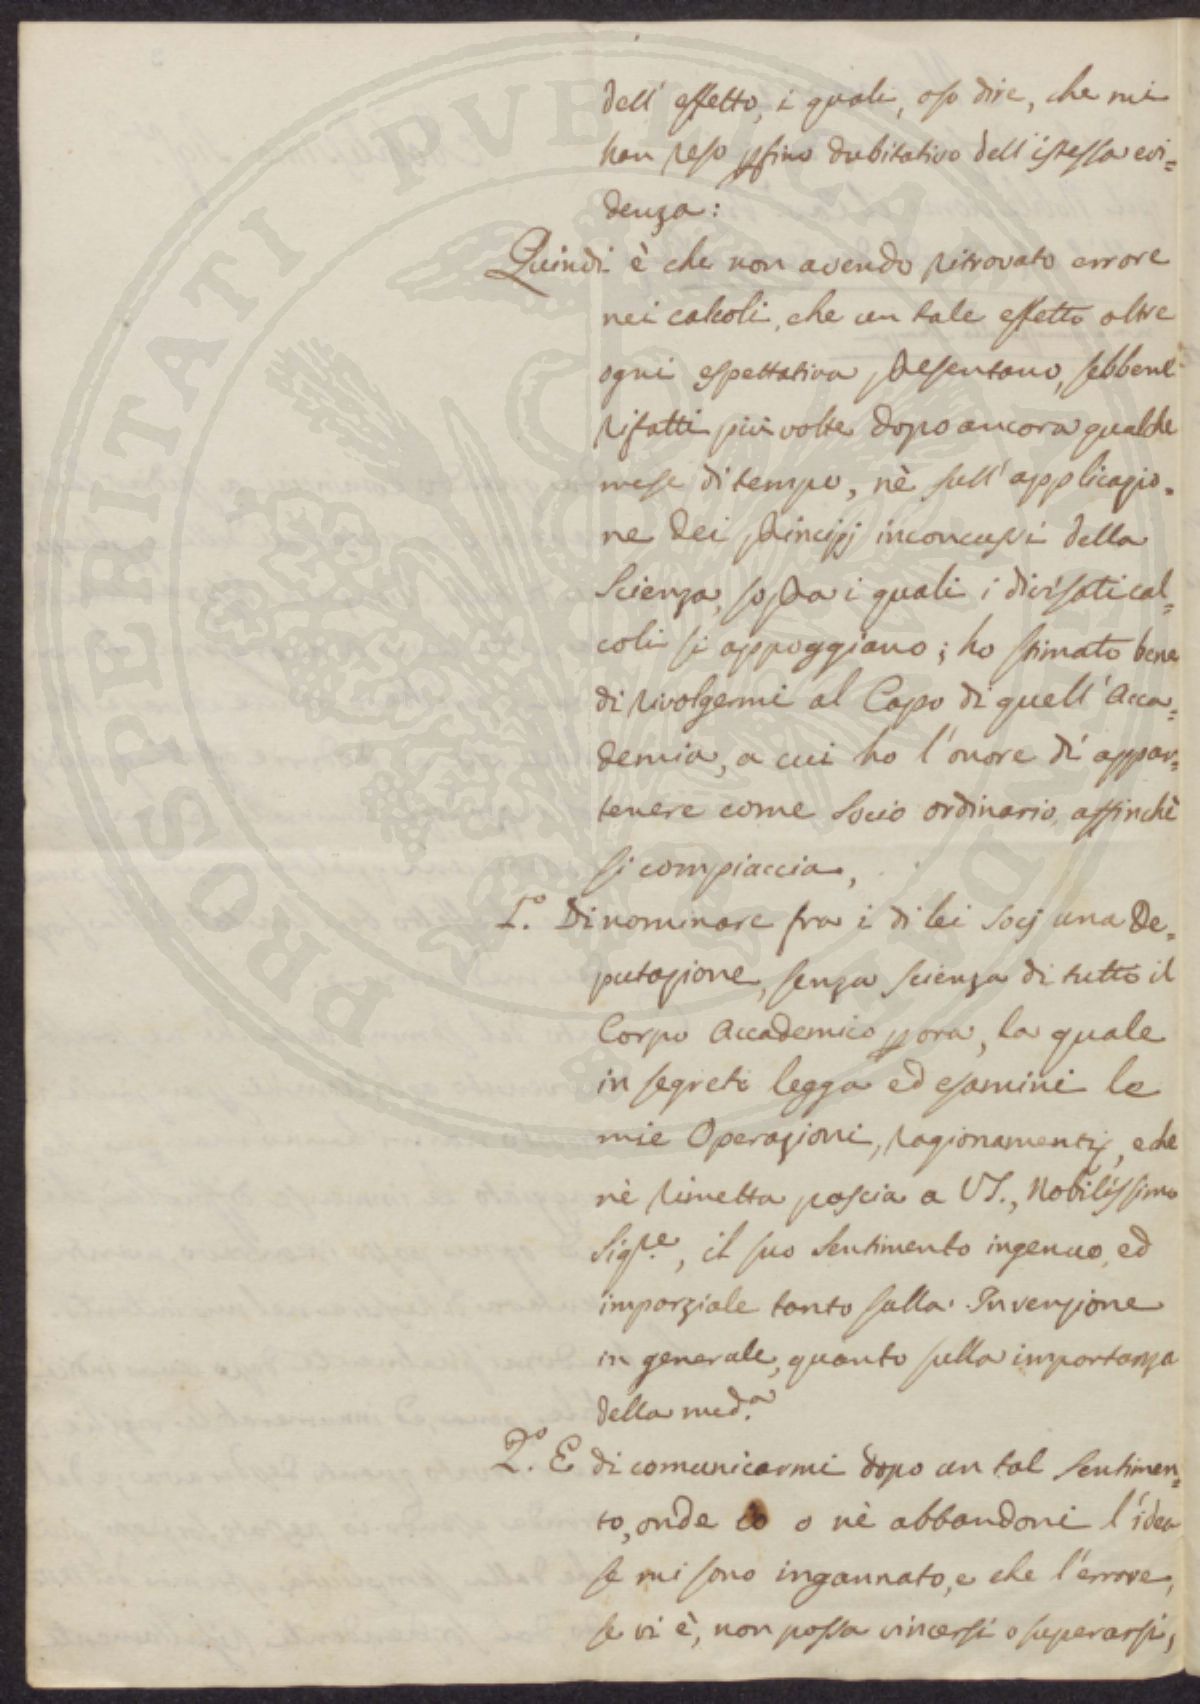 dell' effetto, i quali, oso dire, che mi
han reso pfino dubitativo dell' istessa evi=
denza:
Quindi è che non avendo ritrovato errore
nei calcoli, che un tale effetto oltre
ogni espettativa presentano, sebbene
rifatti più volte dopo ancora qualche
mese di tempo, nè sull' applicazio=
ne dei principj inconcussi della
Scienza, sopra i quali i divisati cal=
coli si appoggiano; ho stimato bene
di rivolgermi al Capo di quell' Acca=
demia, a cui ho l'onore di appar=
tenere come Socio ordinario, affinchè
si compiaccia,
1.º Di nominare fra i di lei Socj una De=
putazione, senza scienza di tutto il
Corpo Accademico p ora, la quale
in segreto legga ed esamini le
mie Operazioni, ragionamenti, e che
nè rimetta poscia a VS., Nobilissimo
Sigre., il suo Sentimento ingenuo, ed
imparziale tanto sulla Invenzione
in generale, quanto sulla importanza
della med.a
2.º E di comunicarmi dopo un tal Sentimen=
to, onde io o nè abbandoni l'idea
se mi sono ingannato, e che l'errore,
se vi è, non possa vincersi o superarsi,
PROSPERITATI PUBLICAE AUGENDAE